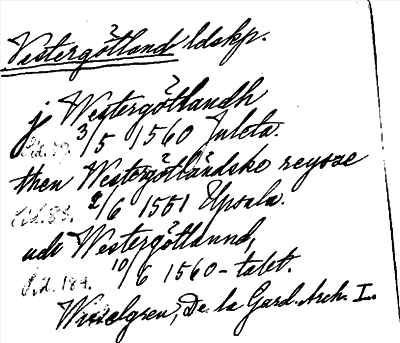 Vestergötland ldskp.
j Westergötlandh
Sid. 3/5 1560 Juleta.
then Westergötländske reysze
Sid. 88. 2/6 1561 Upsala.
udi Westergötlannd,
Sid. 184. 10/6 1560-talet.
Wieselgren, De la Gard. Arch. I.